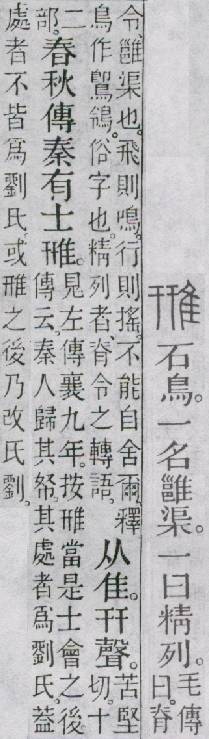 雃石鳥。一名雝渠。一曰精列。毛傳曰。脊
令、雝渠也。飛則鳴。行則搖。不能自舍爾。釋
鳥作䳭鴒。俗字也。精列者、脊令之轉語。从隹。幵聲。苦堅切。十
二部。春秋傳秦有士雃。見左傳襄九年。按雃當是士會之後
傳云。秦人歸其帑。其處者爲劉氏。蓋
處者不皆爲劉氏。或雃之後乃改氏劉。